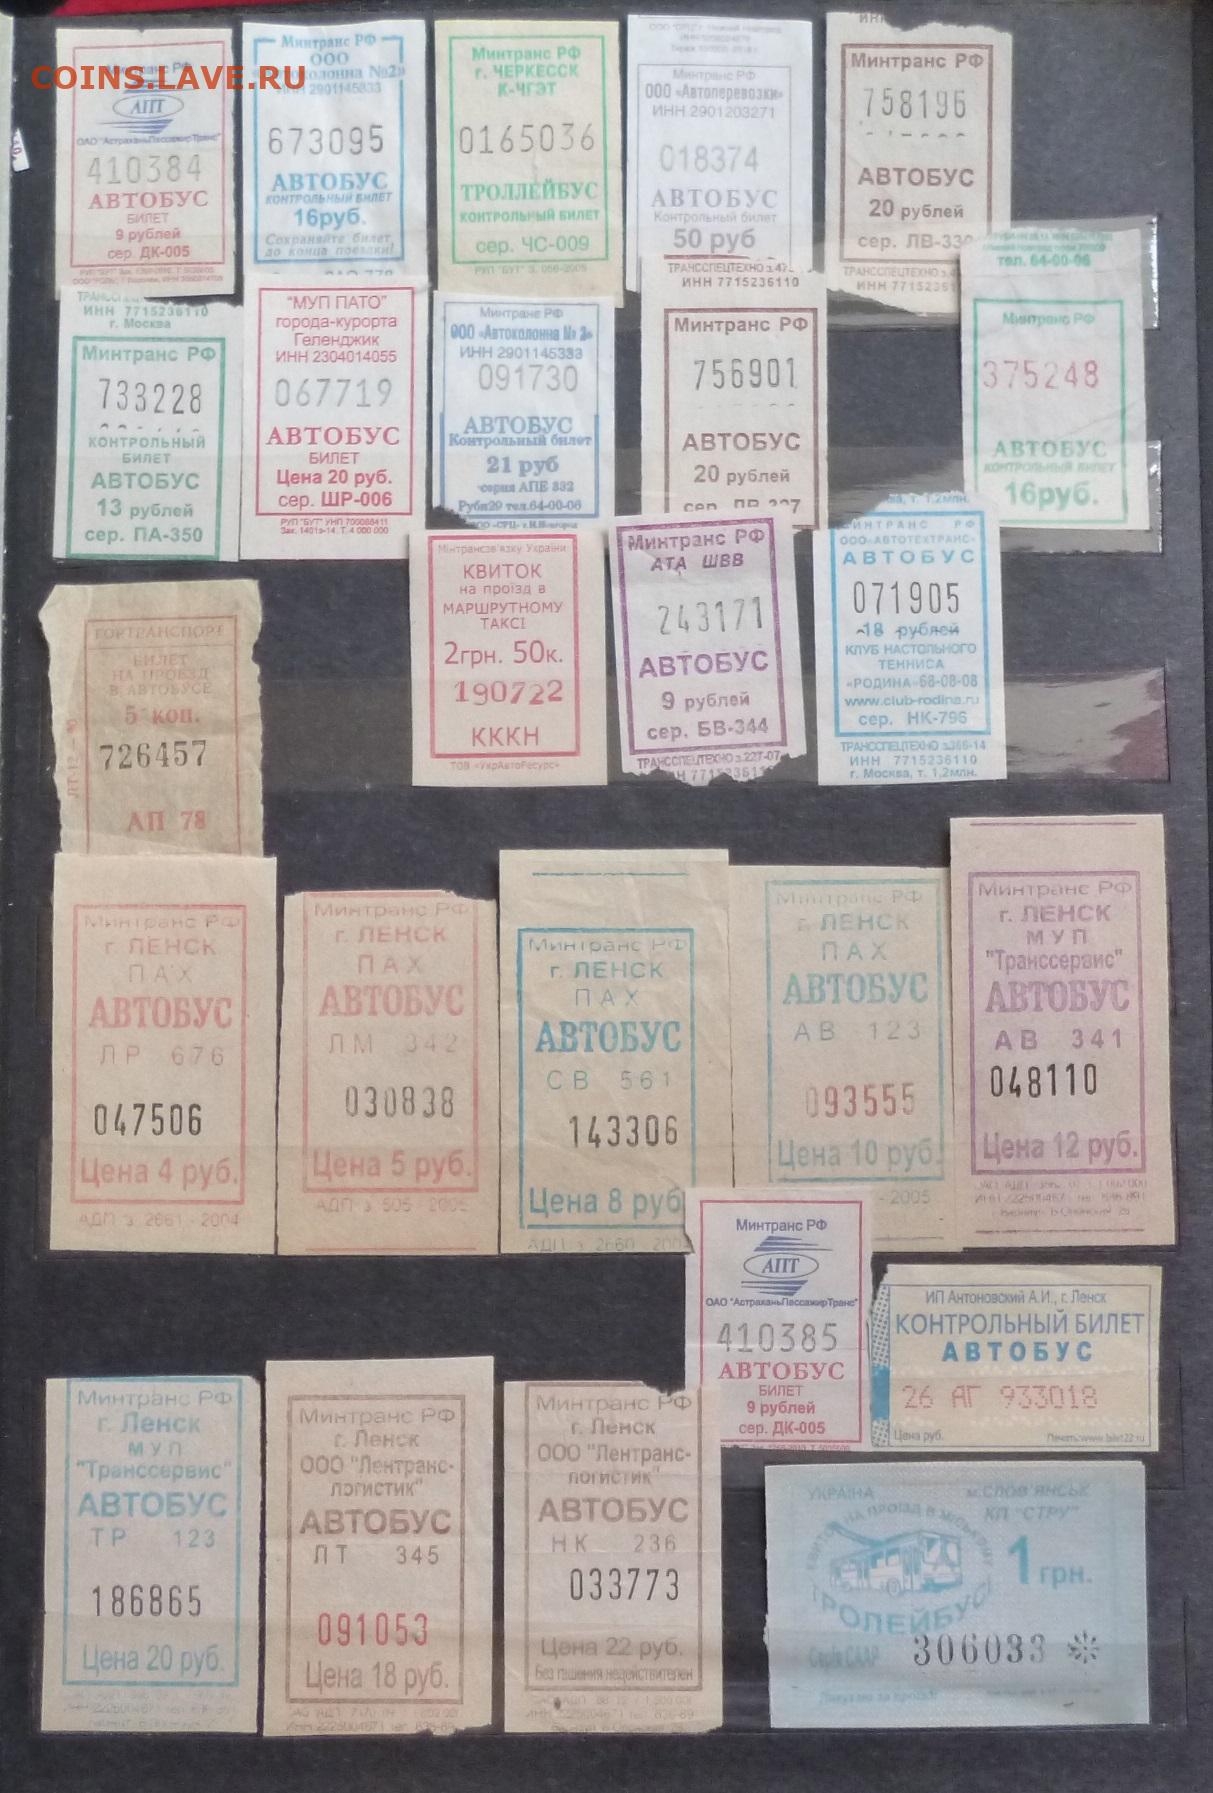 COINS.LAVE.RU
Минтранс РФ
АПТ
ОАО "АстраханьПассажирТранс"
410384
АВТОБУС
БИЛЕТ
9 рублей
сер. ДК-005
Минтранс РФ
ООО
№2»
ИНН 2901145333
673095
АВТОБУС
КОНТРОЛЬНЫЙ БИЛЕТ
16руб.
Сохраняйте билет
до конца поездки!
Минтранс РФ
г. ЧЕРКЕССК
К-ЧГЭТ
0165036
ТРОЛЛЕЙБУС
КОНТРОЛЬНЫЙ БИЛЕТ
сер. ЧС-009
РУП "БУТ" З. 056-2005
Минтранс РФ
ООО «Автоперевозки»
ИНН 2901203271
018374
АВТОБУС
Контрольный билет
50 руб
Минтранс РФ
758196
АВТОБУС
20 рублей
сер. ЛВ-330
ИНН 7715236110
г. Москва
Минтранс РФ
733228
КОНТРОЛЬНЫЙ
БИЛЕТ
АВТОБУС
13 рублей
сер. ПА-350
"МУП ПАТО"
города-курорта
Геленджик
ИНН 2304014055
067719
АВТОБУС
БИЛЕТ
Цена 20 руб.
сер. ШР-006
РУП "БУТ" УНП 700068411
Зак. 1401э-14. Т. 4 000 000
Минтранс РФ
ООО «Автоколонна № 2»
ИНН 2901145333
091730
АВТОБУС
Контрольный билет
21 руб
серия АПЕ 332
Руби29 тел.64-00-06
ТРАНССПЕЦТЕХНО
ИНН 7715236110
Минтранс РФ
756901
АВТОБУС
20 рублей
тел. 64-00-06
Минтранс РФ
375248
АВТОБУС
КОНТРОЛЬНЫЙ БИЛЕТ
16руб.
ГОРТРАНСПОРТ
БИЛЕТ
НА ПРОЕЗД
В АВТОБУСЕ
5 коп.
726457
АП 78
Мінтрансзв'язку України
КВИТОК
на проїзд в
МАРШРУТНОМУ
ТАКСІ
2грн. 50к.
190722
КККН
ТОВ «УкрАвтоРесурс»
Минтранс РФ
АТА ШВВ
243171
АВТОБУС
9 рублей
сер. БВ-344
ТРАНССПЕЦТЕХНО з.227-07
т. 1,2млн.
МИНТРАНС РФ
ООО«АВТОТЕХТРАНС»
АВТОБУС
071905
18 рублей
КЛУБ НАСТОЛЬНОГО
ТЕННИСА
«РОДИНА»68-08-08
www.club-rodina.ru
сер. НК-796
ТРАНССПЕЦТЕХНО з.366-14
ИНН 7715236110
г. Москва, т. 1,2млн.
Минтранс РФ
г. ЛЕНСК
ПАХ
АВТОБУС
ЛР 676
047506
Цена 4 руб.
АДП з. 2661 - 2004
Минтранс РФ
г. ЛЕНСК
ПАХ
АВТОБУС
ЛМ 342
030838
Цена 5 руб.
АДП з. 505 - 2005
Минтранс РФ
г. ЛЕНСК
ПАХ
АВТОБУС
СВ 561
143306
Цена 8 руб
АДП з. 2660
Минтранс РФ
г. ЛЕНСК
ПАХ
АВТОБУС
АВ 123
093555
Цена 10 руб.
- 2005
Минтранс РФ
г. ЛЕНСК
МУП
"Транссервис"
АВТОБУС
АВ 341
048110
Цена 12 руб.
Минтранс РФ
АПТ
ОАО "АстраханьПассажирТранс"
410385
АВТОБУС
БИЛЕТ
9 рублей
сер. ДК-005
ИП Антоновский А.И., г. Ленск
КОНТРОЛЬНЫЙ БИЛЕТ
АВТОБУС
26 АГ 933018
Цена руб.
Печать:www.bilet22.ru
Минтранс РФ
г. Ленск
МУП
"Транссервис"
АВТОБУС
ТР 123
186865
Цена 20 руб.
Минтранс РФ
г. Ленск
ООО "Лентранс-
логистик"
АВТОБУС
ЛТ 345
091053
Цена 18 руб.
Минтранс РФ
г. Ленск
ООО "Лентранс-
логистик"
АВТОБУС
НК 236
033773
Цена 22 руб.
Без гашения недействителен
УКРАЇНА
м.СЛОВ'ЯНСЬК
КП "СТРУ"
1 грн.
ТРОЛЕЙБУСІ
Серія СААР
306033